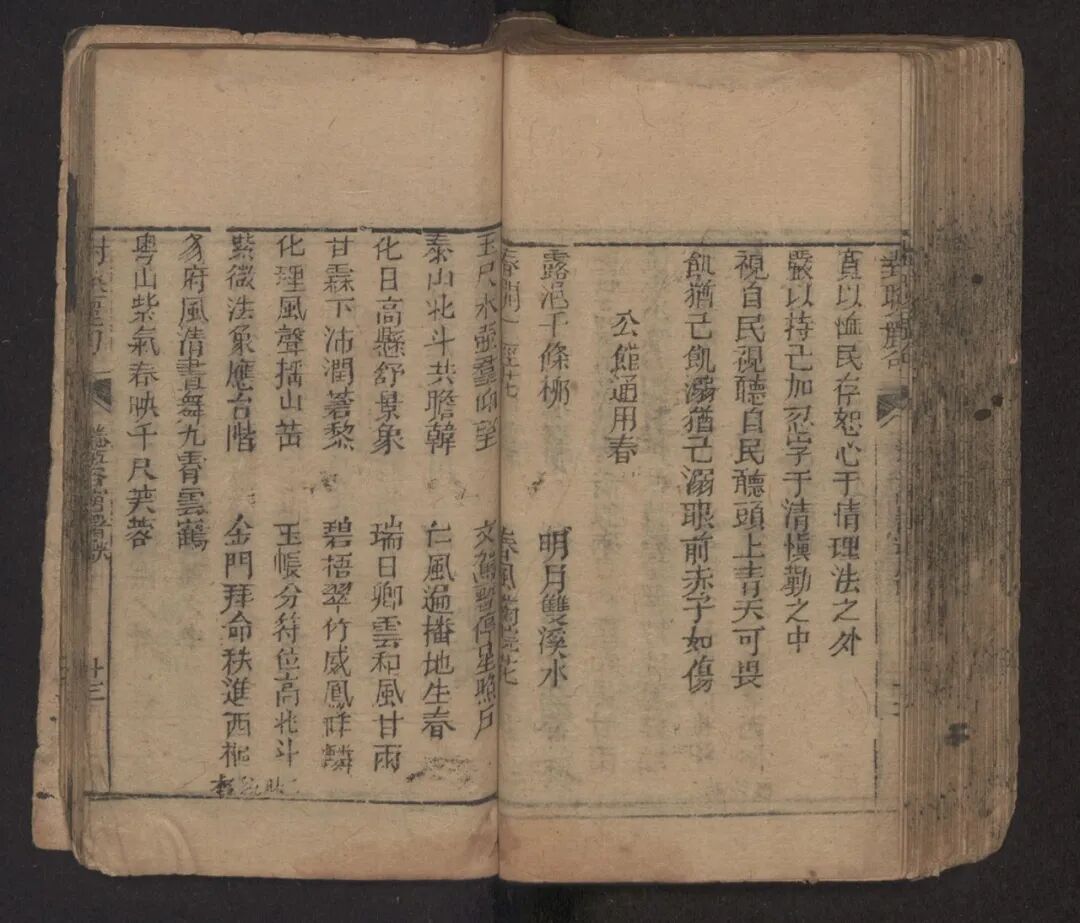 寬以恤民存恕心于情理法之外
嚴以持己加忍字于清愼勤之中
視自民視聽自民聽頭上青天可畏
飢猶己飢溺猶己溺眼前赤子如傷
公館通用春
露浥千條柳 明月雙溪水
玉尺氷壺羣仰望 文 暫停星照戶
泰山北斗共瞻韓 仁風遍播地生春
化日高懸舒景象 瑞日卿雲和風甘雨
甘霖下沛潤 黎 碧梧翠竹威鳳祥麟
化理風聲搖山岳 玉帳分符位高北斗
紫微法象應台階 金門拜命秩進西樞
府風清晝舞九霄雲鶴
粤山紫氣春映千尺芙蓉
廿三